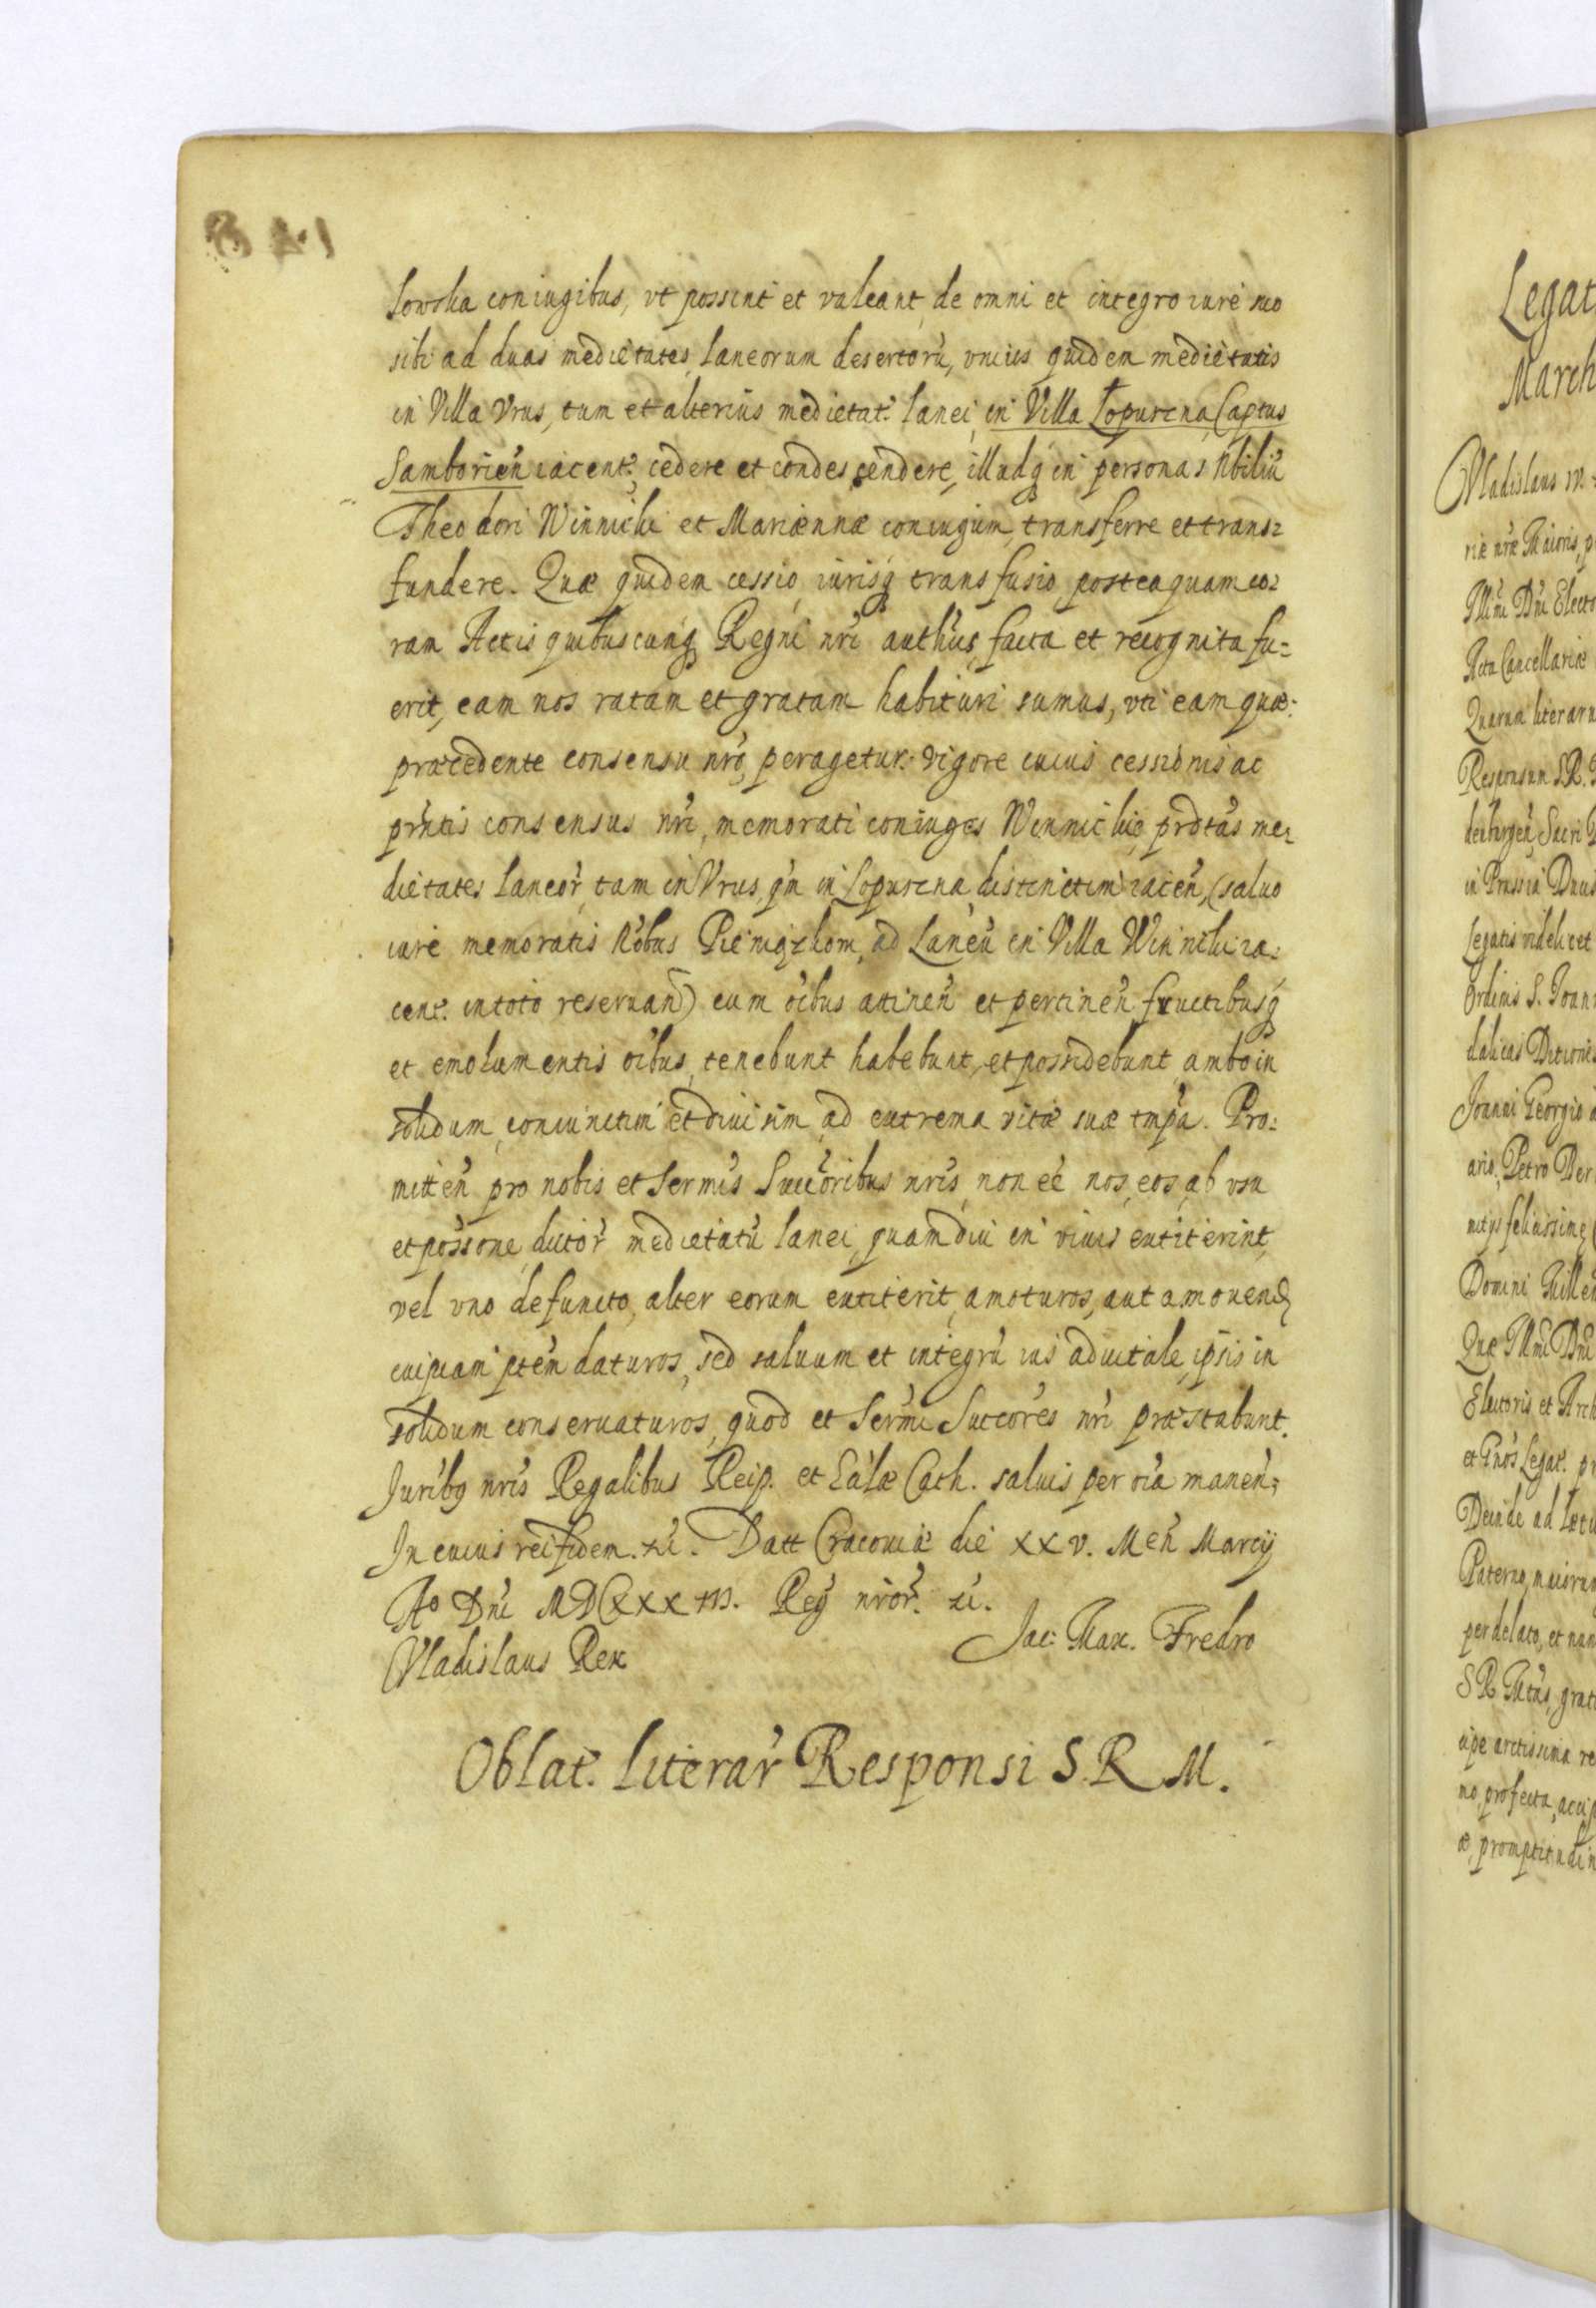 lowska coniugibus, vt possint et valeant, de omni et integro iure suo
sibi ad duas medietates laneorum desertorũ, vnius quidem medietatis
in Villa Vrus, tum et alterius medietat: lanei, in Villa Łopuszna Captus
Samborien̄ iacent: cedere et condescendere, illudq̃ in personas Nbiliũ
Theodori Winnicki et Mariænnæ coniugum, transferre et trans=
fundere. Quæ quidem cessio iurisq̃ transfusio posteaquam co=
ram Actis quibuscunq̃ Regni nr̃i auth̃cis facta et recognita fu=
erit, eam nos ratam et gratam habituri sumus, vti eam quæ
præcedente consensu nr̃o peragetur. Vigore cuius cessionis ac
pr̃ntis consensus nr̃i, memorati coniuges Winnickie prd̃tas me=
dietates laneor̃, tam in Vrus, q̃m in Lopuszna distinctim iacen̄, (saluo
iure memoratis Nobus Pieniążkom, ad Laneũ in Villa Winniki ia=
cent. in toto reseruan̄) cum oĩbus attinen̄ et pertinen̄ fructibusq̃
et emolumentis oĩbus, tenebunt habebunt, et possidebunt, ambo in
solidum, coniunctim et diuisim, ad extrema vitæ suæ tmp̃a. Pro=
mitten̄ pro nobis et Sermis Succ̃oribus nr̃is, non eẽ nos, eos, ab vsu
et poss̃one, dictor̃ medietatũ lanei, quamdiu in viuis extiterint,
vel vno defuncto, alter eorum extiterit, amoturos, aut amouend̃
cuipiam pt̃em daturos, sed saluum et integrũ ius aduitale, ipsis in
solidum conseruaturos, quod et Serm̃i Succ̃ores nr̃i præstabunt.
Juribq nr̃is Regalibus Reip. et Ecl̃æ Cath. saluis per oĩa manen̄;
In cuius rei fidem. etc̃. Datt Cracouiæ die XXV. Men̄ Marcij
Ao Dn̄i MDCXXXIII. Reg̃ nr̃or̃. etc̃.
Vladislaus Rex Jac: Max. Fredro
Oblat. literar̃ Responsi S. R. M.
Legat
March
Vladislaus IV
riæ nr̃æ Maioris, p
Illm̃i Dn̄i Electo
Acta Cancellariæ
Quarum literaru
Responsum S.R.
deburgen̄, Sacri
in Prussia Ducis
Legatis videlicet
Ordinis S. Joan
dalicas Ditionis
Joanni Georgio
ario, Petro Ber
Domini
Quæ Illm̃i Dn̄i
Electoris et Arch
Deinde ad
Paterno
per delato, et nun
no profecta, accip
æ, promptitudin